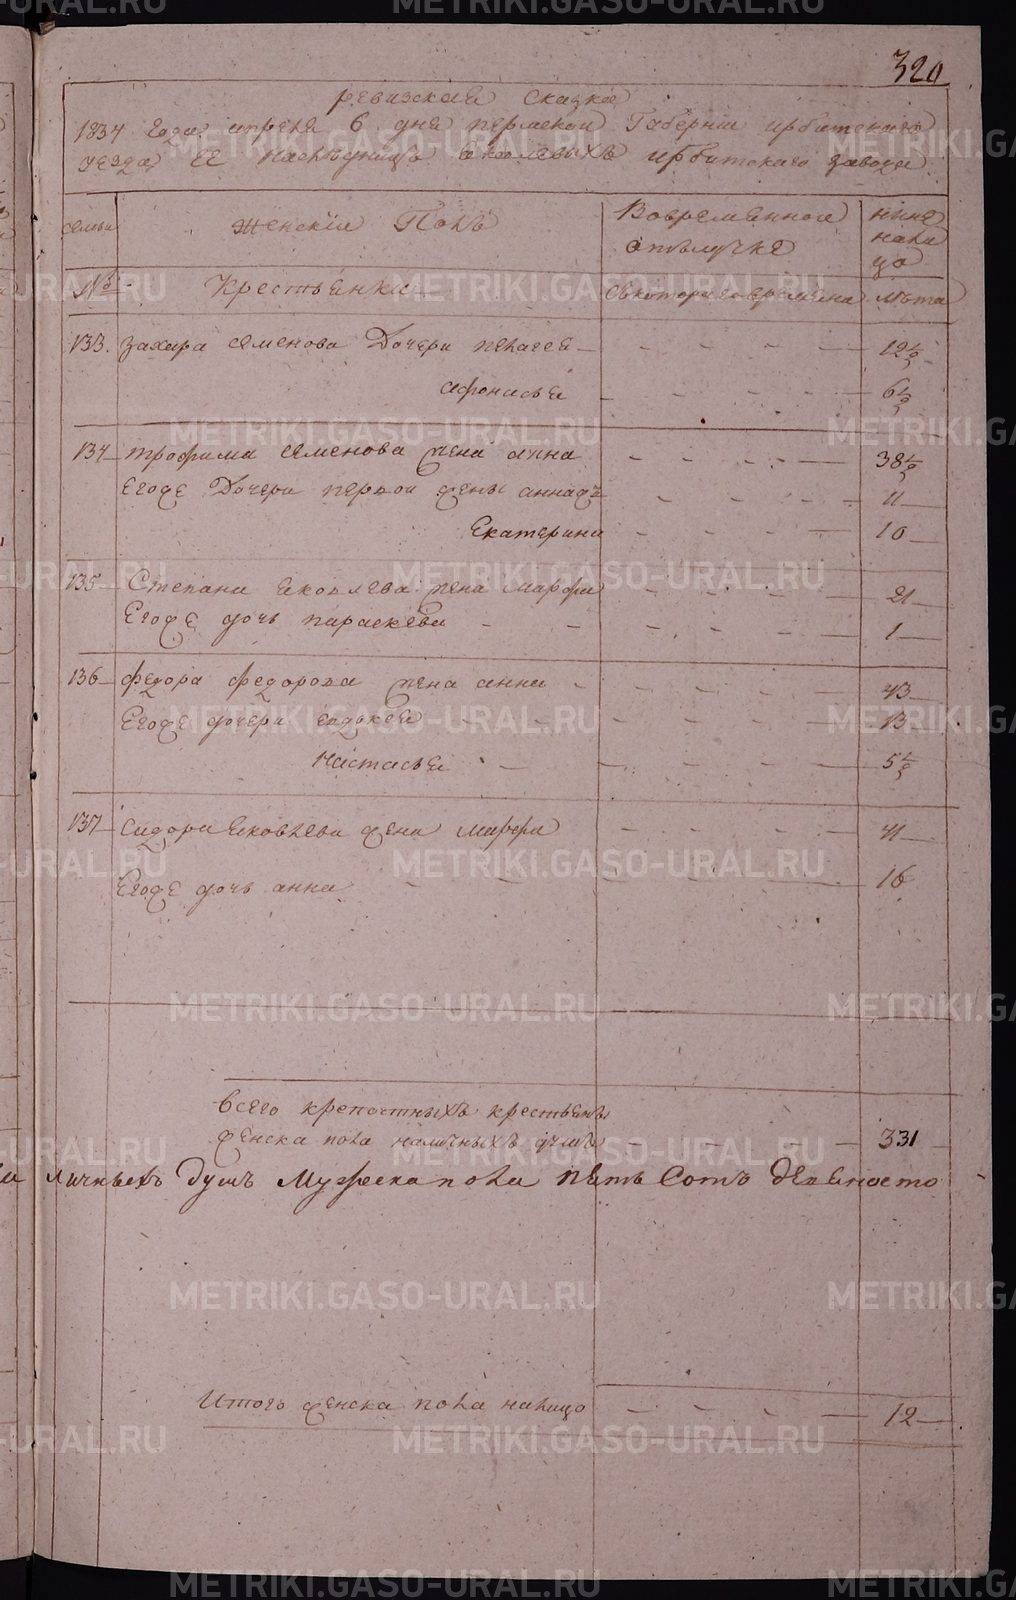 320
ревизская сказка
1834 года апреля 6 дня пермской Губернии ирбитскаго
уезда ее наследницъ яковлевыхъ ирбитскаго завода
семьи
женскій Полъ
Вовременной отълучке
ныне налицо
№
Крестьянки
съкотораговремяна
лета
133. захара семенова Дочери пелагея - - - - 12½
афонасья - - - - 6½
134 трофима семенова жена анна - - - - 38½
Егоже Дочери первой жены - - - - 11
Екатерина - - - - 10
135 Степана яковлева жена марфа - - - - 21
Егоже дочь параскева - - - - 1
136 федора федорова жена анна - - - - 43
Егоже дочери евдокея - - - - 13
Настасья - - - - 5½
137 сидора яковлева жена марфа - - - - 41
Егоже дочь анна - - - - 16
всего крепостныхъ крестьянъ
женска пола наличныхъ душъ - - - - 331
личныхъ Душъ Мужеска пола пять Сотъ девяносто
Итого женска пола налицо - - - - 12
METRIKI.GASO-URAL.RU